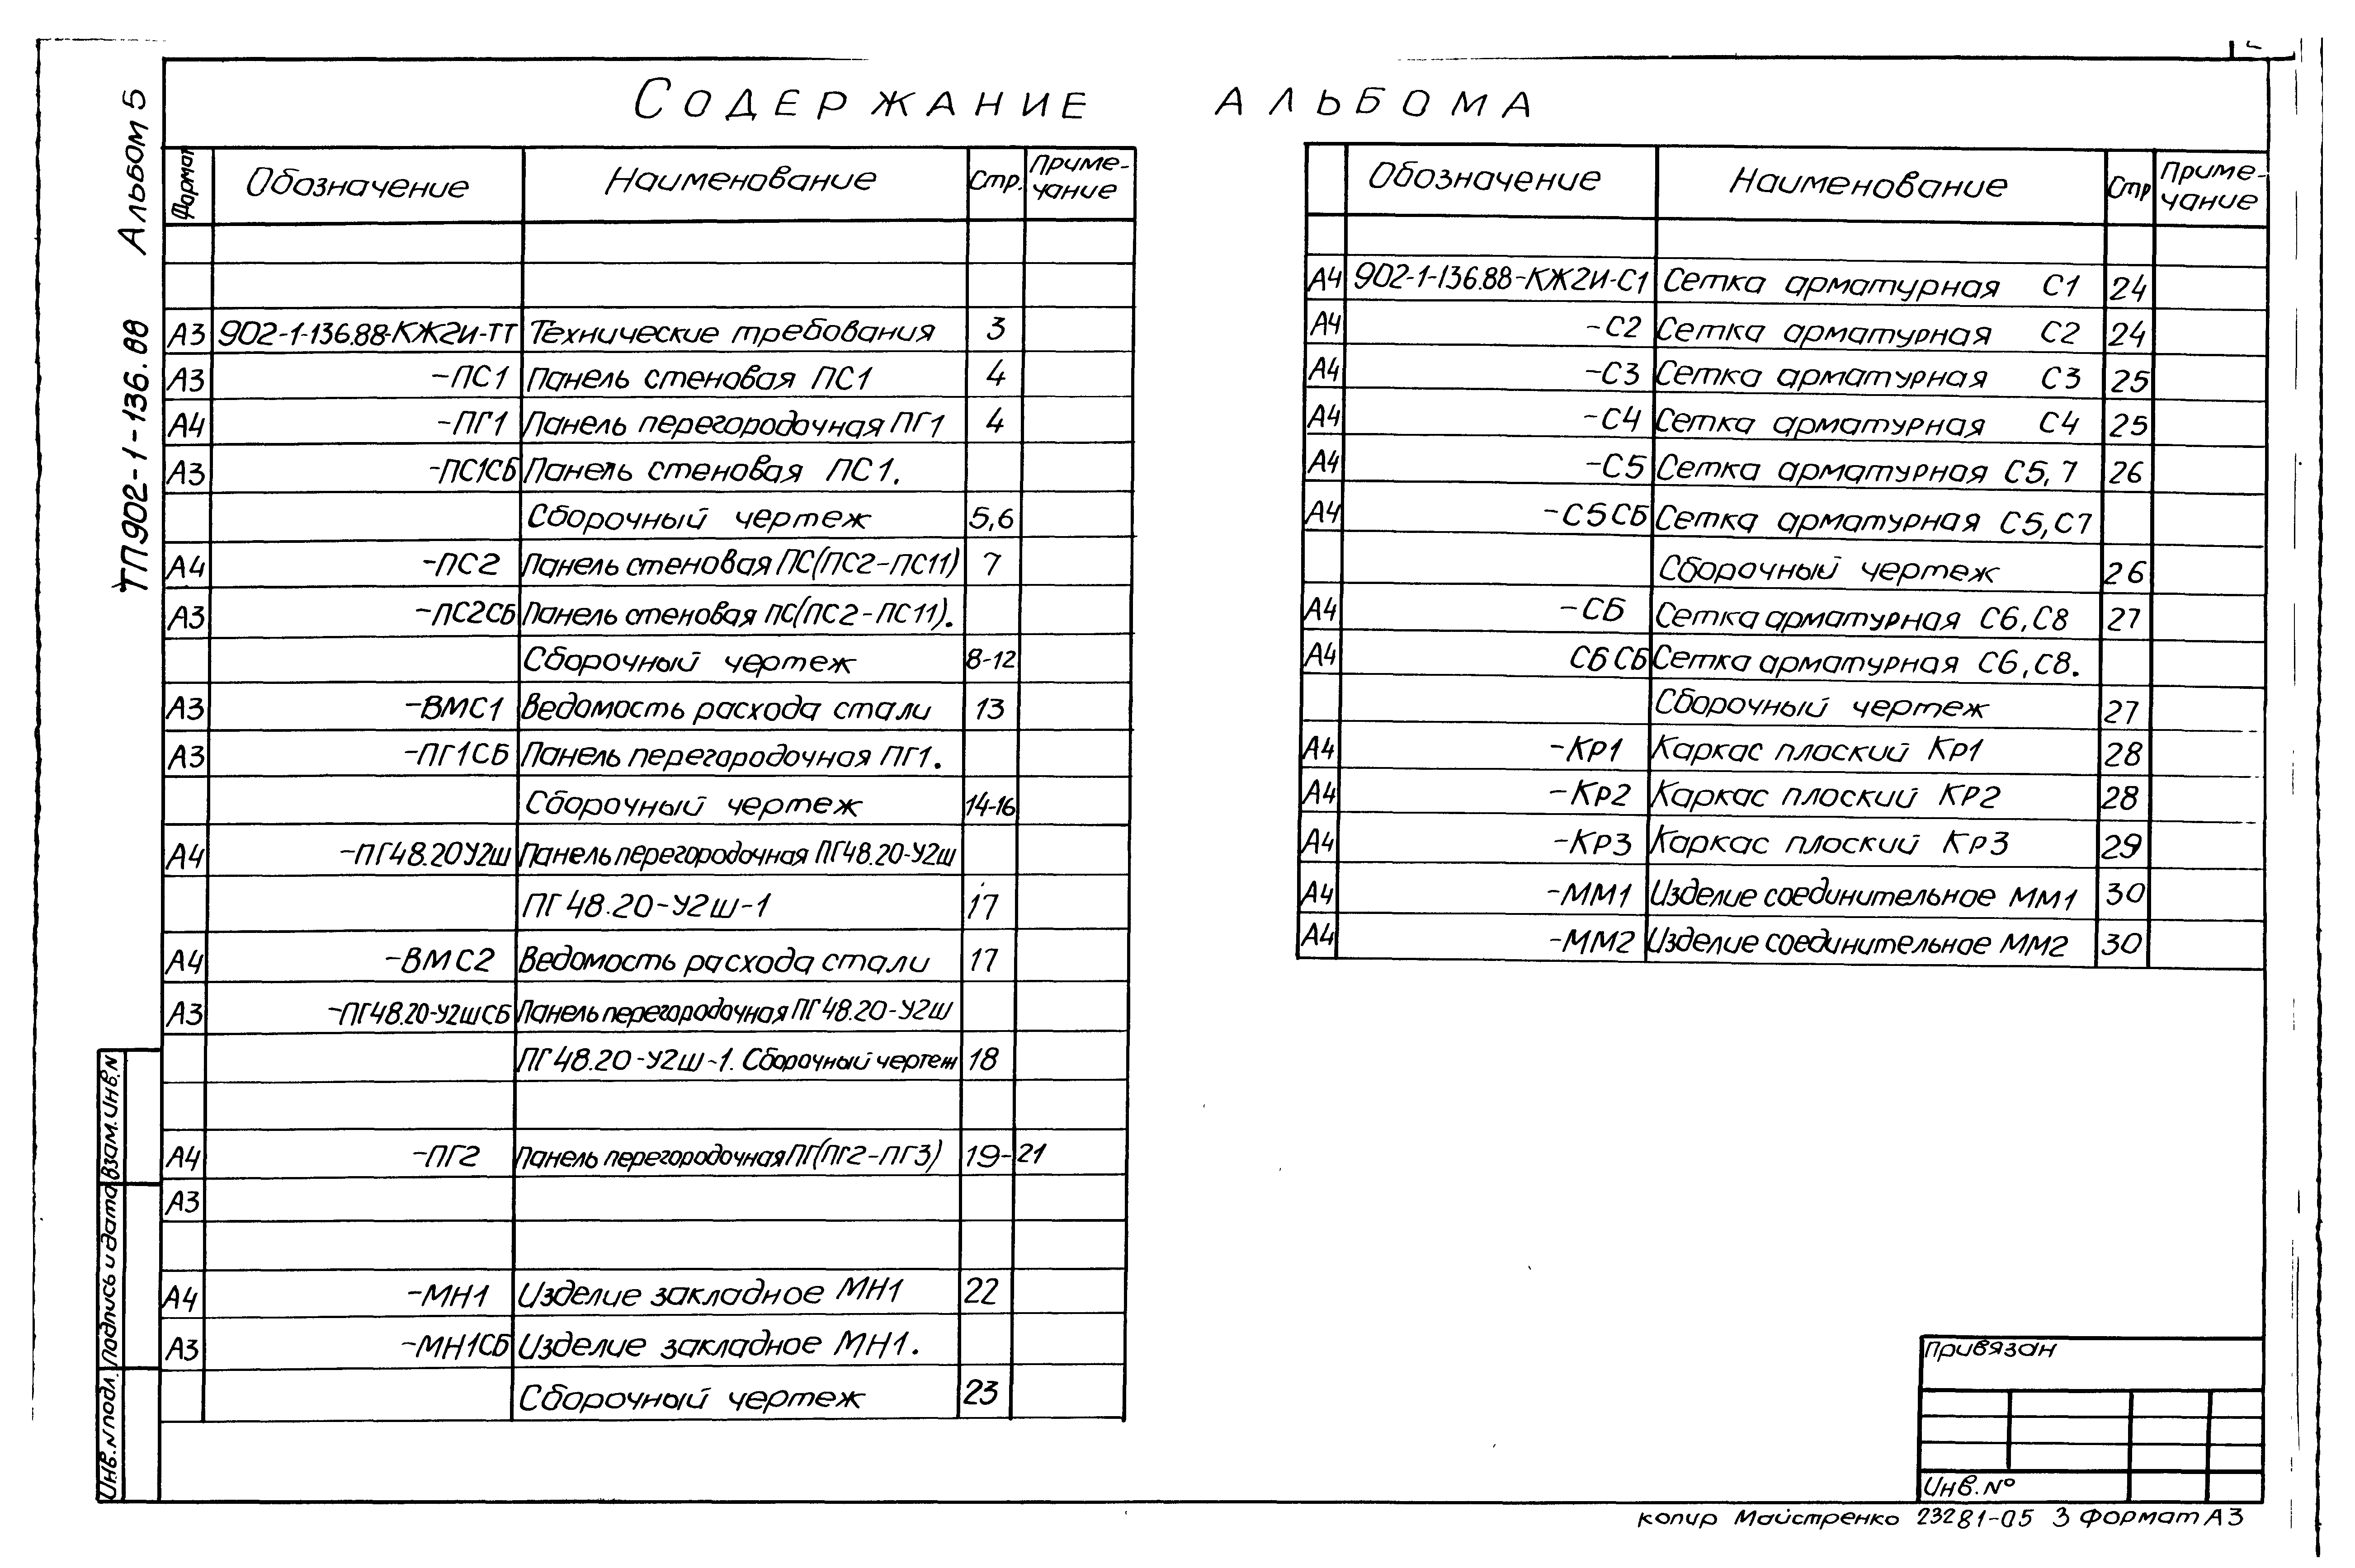 СОДЕРЖАНИЕ АЛЬБОМА
Альбом 5
ТП902-1-136.88
Формат Обозначение Наименование Стр. Приме-чание
А3 902-1-136.88-КЖ2И-ТТ Технические требования 3
А3 -ПС1 Панель стеновая ПС1 4
А4 -ПГ1 Панель перегородочная ПГ1 4
А3 -ПС1СБ Панель стеновая ПС1.
Сборочный чертеж 5,6
А4 -ПС2 Панель стеновая ПС(ПС2-ПС11) 7
А3 -ПС2СБ Панель стеновая ПС(ПС2-ПС11).
Сборочный чертеж 8-12
А3 -ВМС1 Ведомость расхода стали 13
А3 -ПГ1СБ Панель перегородочная ПГ1.
Сборочный чертеж 14-16
А4 -ПГ48.20У2ш Панель перегородочная ПГ48.20-У2ш
ПГ48.20-У2ш-1 17
А4 -ВМС2 Ведомость расхода стали 17
А3 -ПГ48.20-У2шСБ Панель перегородочная ПГ48.20-У2ш
ПГ48.20-У2ш-1. Сборочный чертеж 18
А4 -ПГ2 Панель перегородочная ПГ(ПГ2-ПГ3) 19-21
А3
А4 -МН1 Изделие закладное МН1 22
А3 -МН1СБ Изделие закладное МН1.
Сборочный чертеж 23
Обозначение Наименование Стр Приме-чание
А4 902-1-136.88-КЖ2И-С1 Сетка арматурная С1 24
А4 -С2 Сетка арматурная С2 24
А4 -С3 Сетка арматурная С3 25
А4 -С4 Сетка арматурная С4 25
А4 -С5 Сетка арматурная С5,7 26
А4 -С5СБ Сетка арматурная С5,С7
Сборочный чертеж 26
А4 -СБ Сетка арматурная С6,С8 27
А4 СБСБ Сетка арматурная С6,С8.
Сборочный чертеж 27
А4 -Кр1 Каркас плоский Кр1 28
А4 -Кр2 Каркас плоский КР2 28
А4 -Кр3 Каркас плоский Кр3 29
А4 -ММ1 Изделие соединительное ММ1 30
А4 -ММ2 Изделие соединительное ММ2 30
Инв.N подл. Подпись и дата Взам.инв.N
Привязан
Инв.№
копир Майстренко 23281-05 3 Формат А3